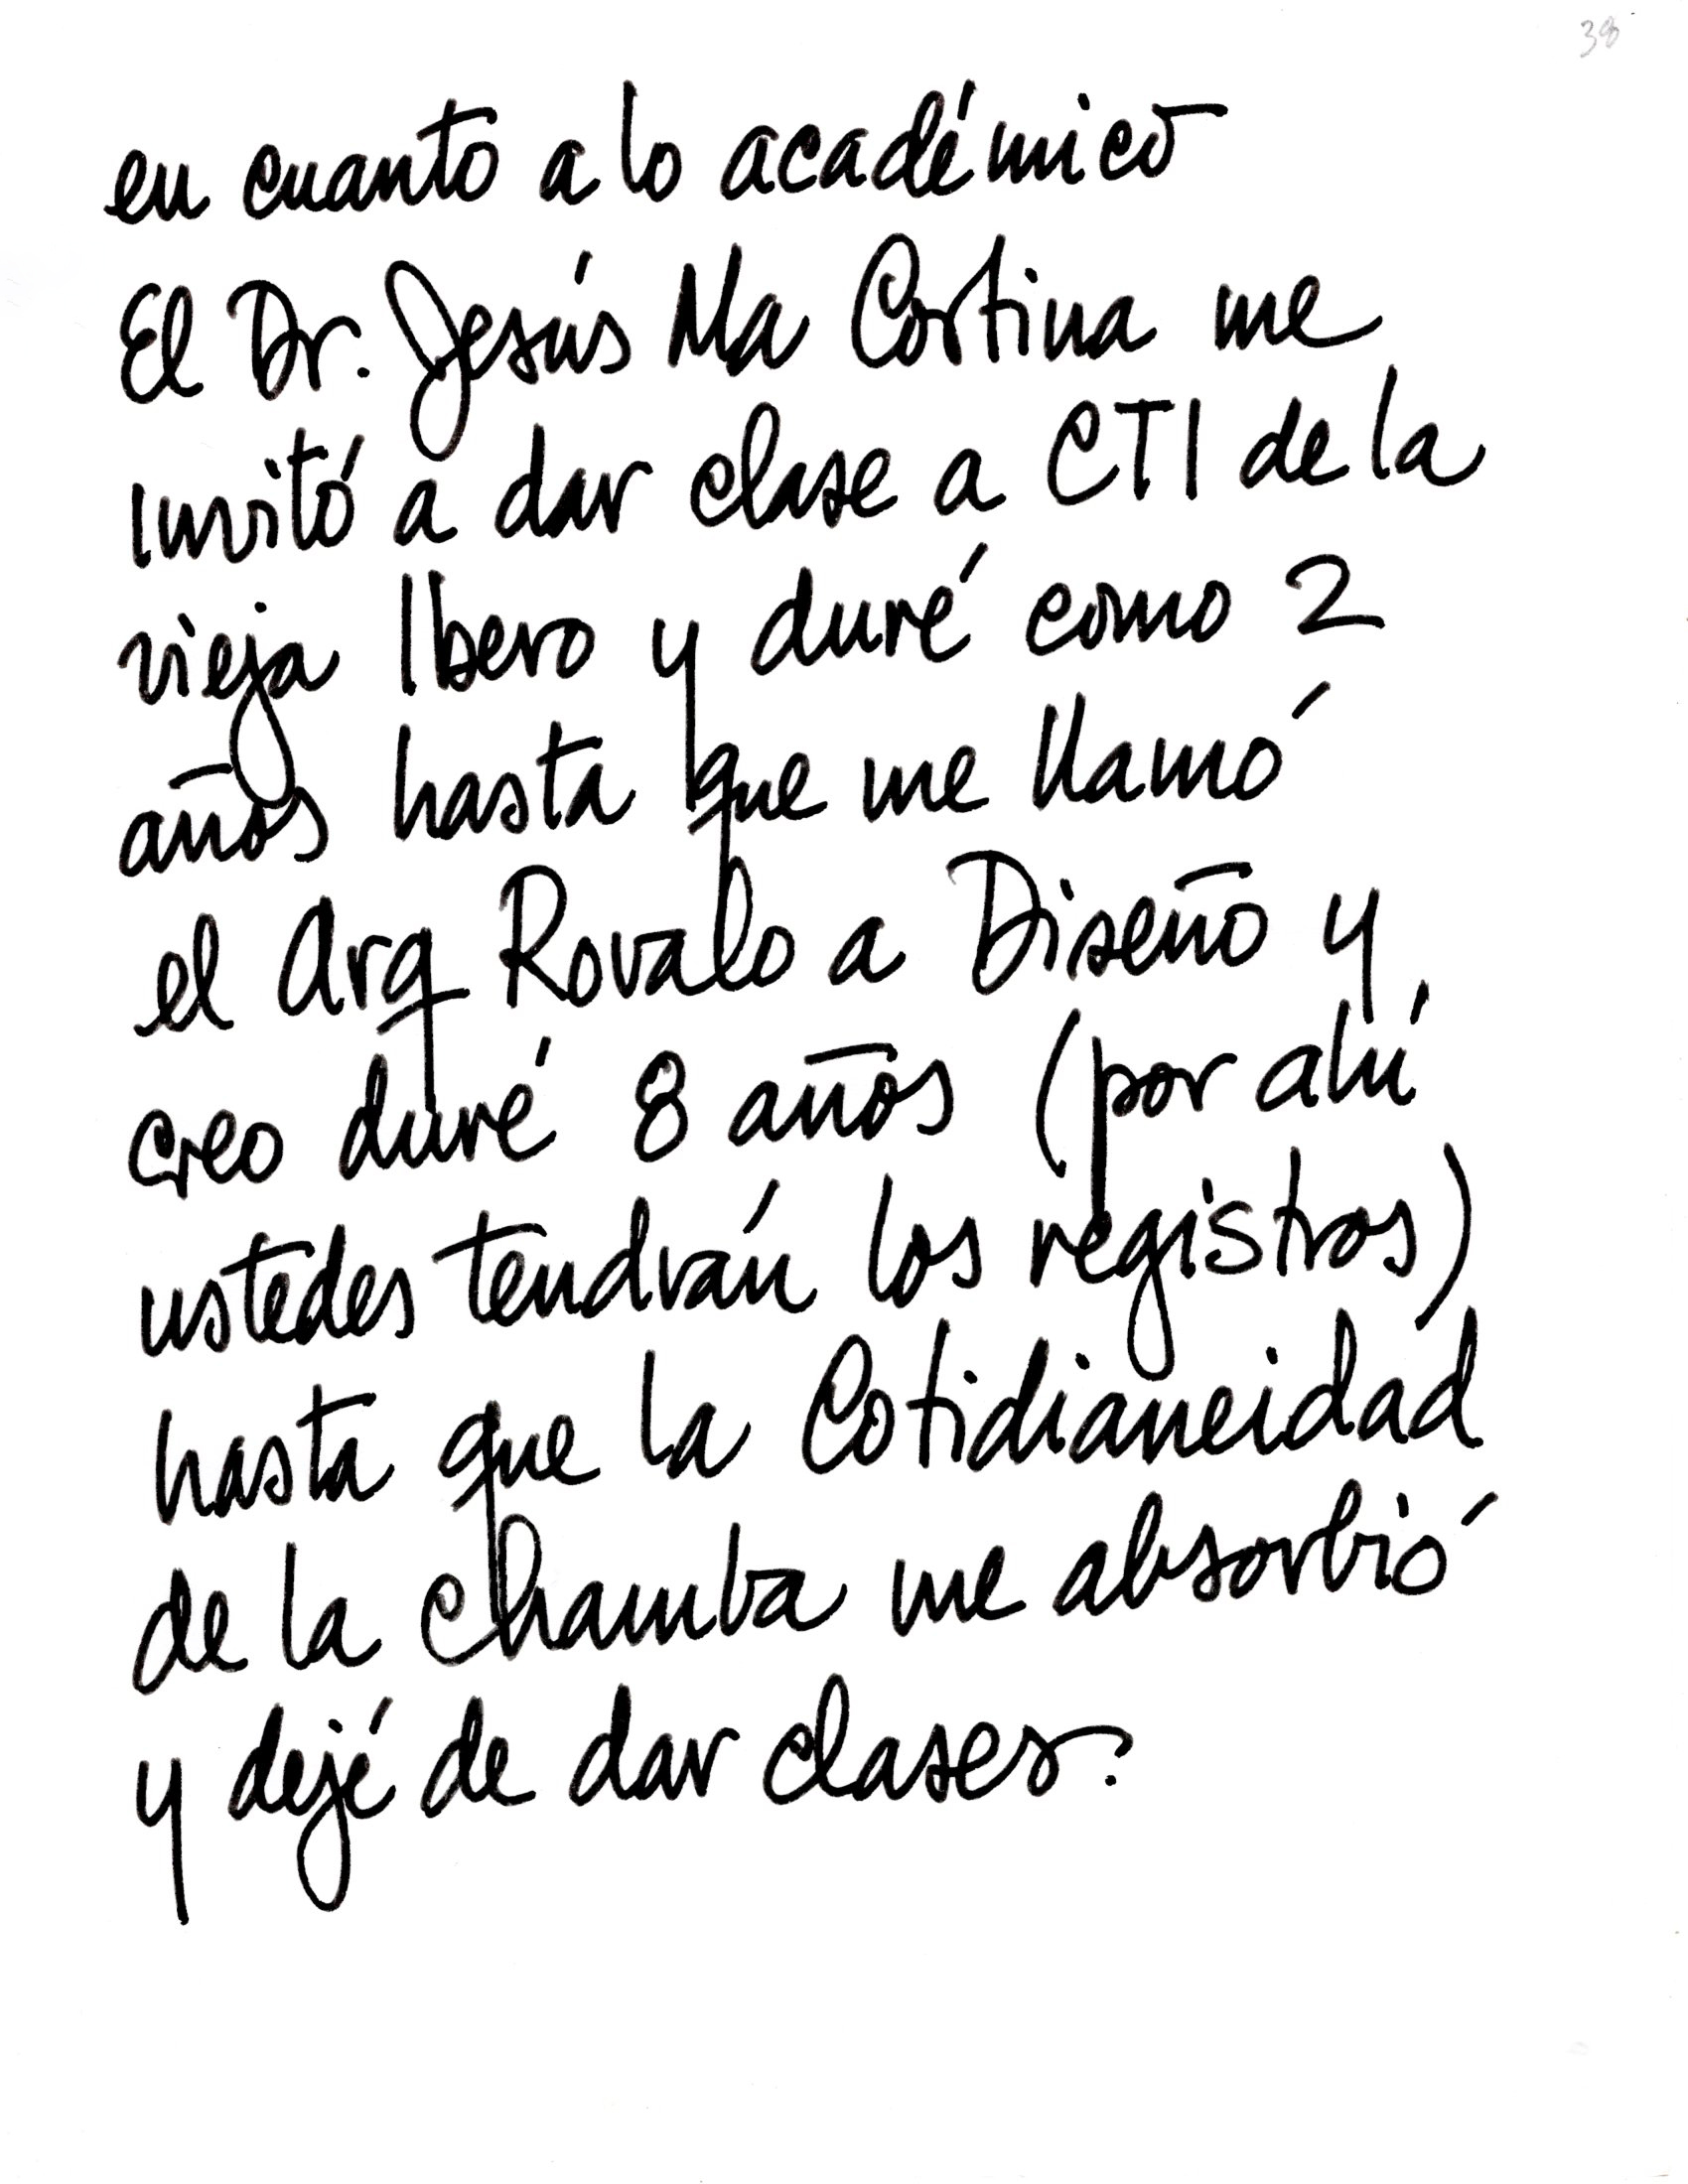 38
en cuanto a lo académico
El Dr. Jesús Ma Cortina me
invitó a dar clase a CTI de la
vieja Ibero y duré como 2
años hasta que me llamó
el Arq Rovalo a Diseño y
creo duré 8 años (por ahí
ustedes tendrán los registros)
hasta que la Cotidianeidad
de la chamba me absorbió
y dejé de dar clases.